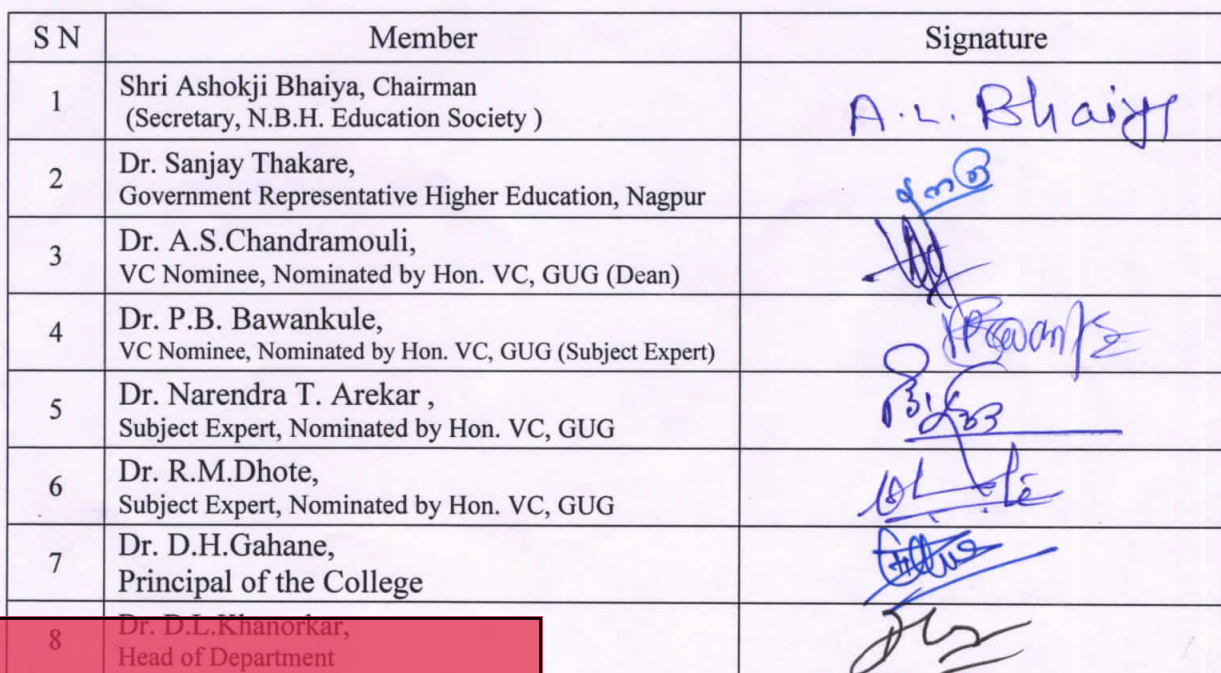 S N Member Signature
1 Shri Ashokji Bhaiya, Chairman
(Secretary, N.B.H. Education Society )
A.L. Bhaiya
2 Dr. Sanjay Thakare,
Government Representative Higher Education, Nagpur
3 Dr. A.S.Chandramouli,
VC Nominee, Nominated by Hon. VC, GUG (Dean)
4 Dr. P.B. Bawankule,
VC Nominee, Nominated by Hon. VC, GUG (Subject Expert)
5 Dr. Narendra T. Arekar ,
Subject Expert, Nominated by Hon. VC, GUG
6 Dr. R.M.Dhote,
Subject Expert, Nominated by Hon. VC, GUG
7 Dr. D.H.Gahane,
Principal of the College
8 Dr. D.L.Khanorkar,
Head of Department